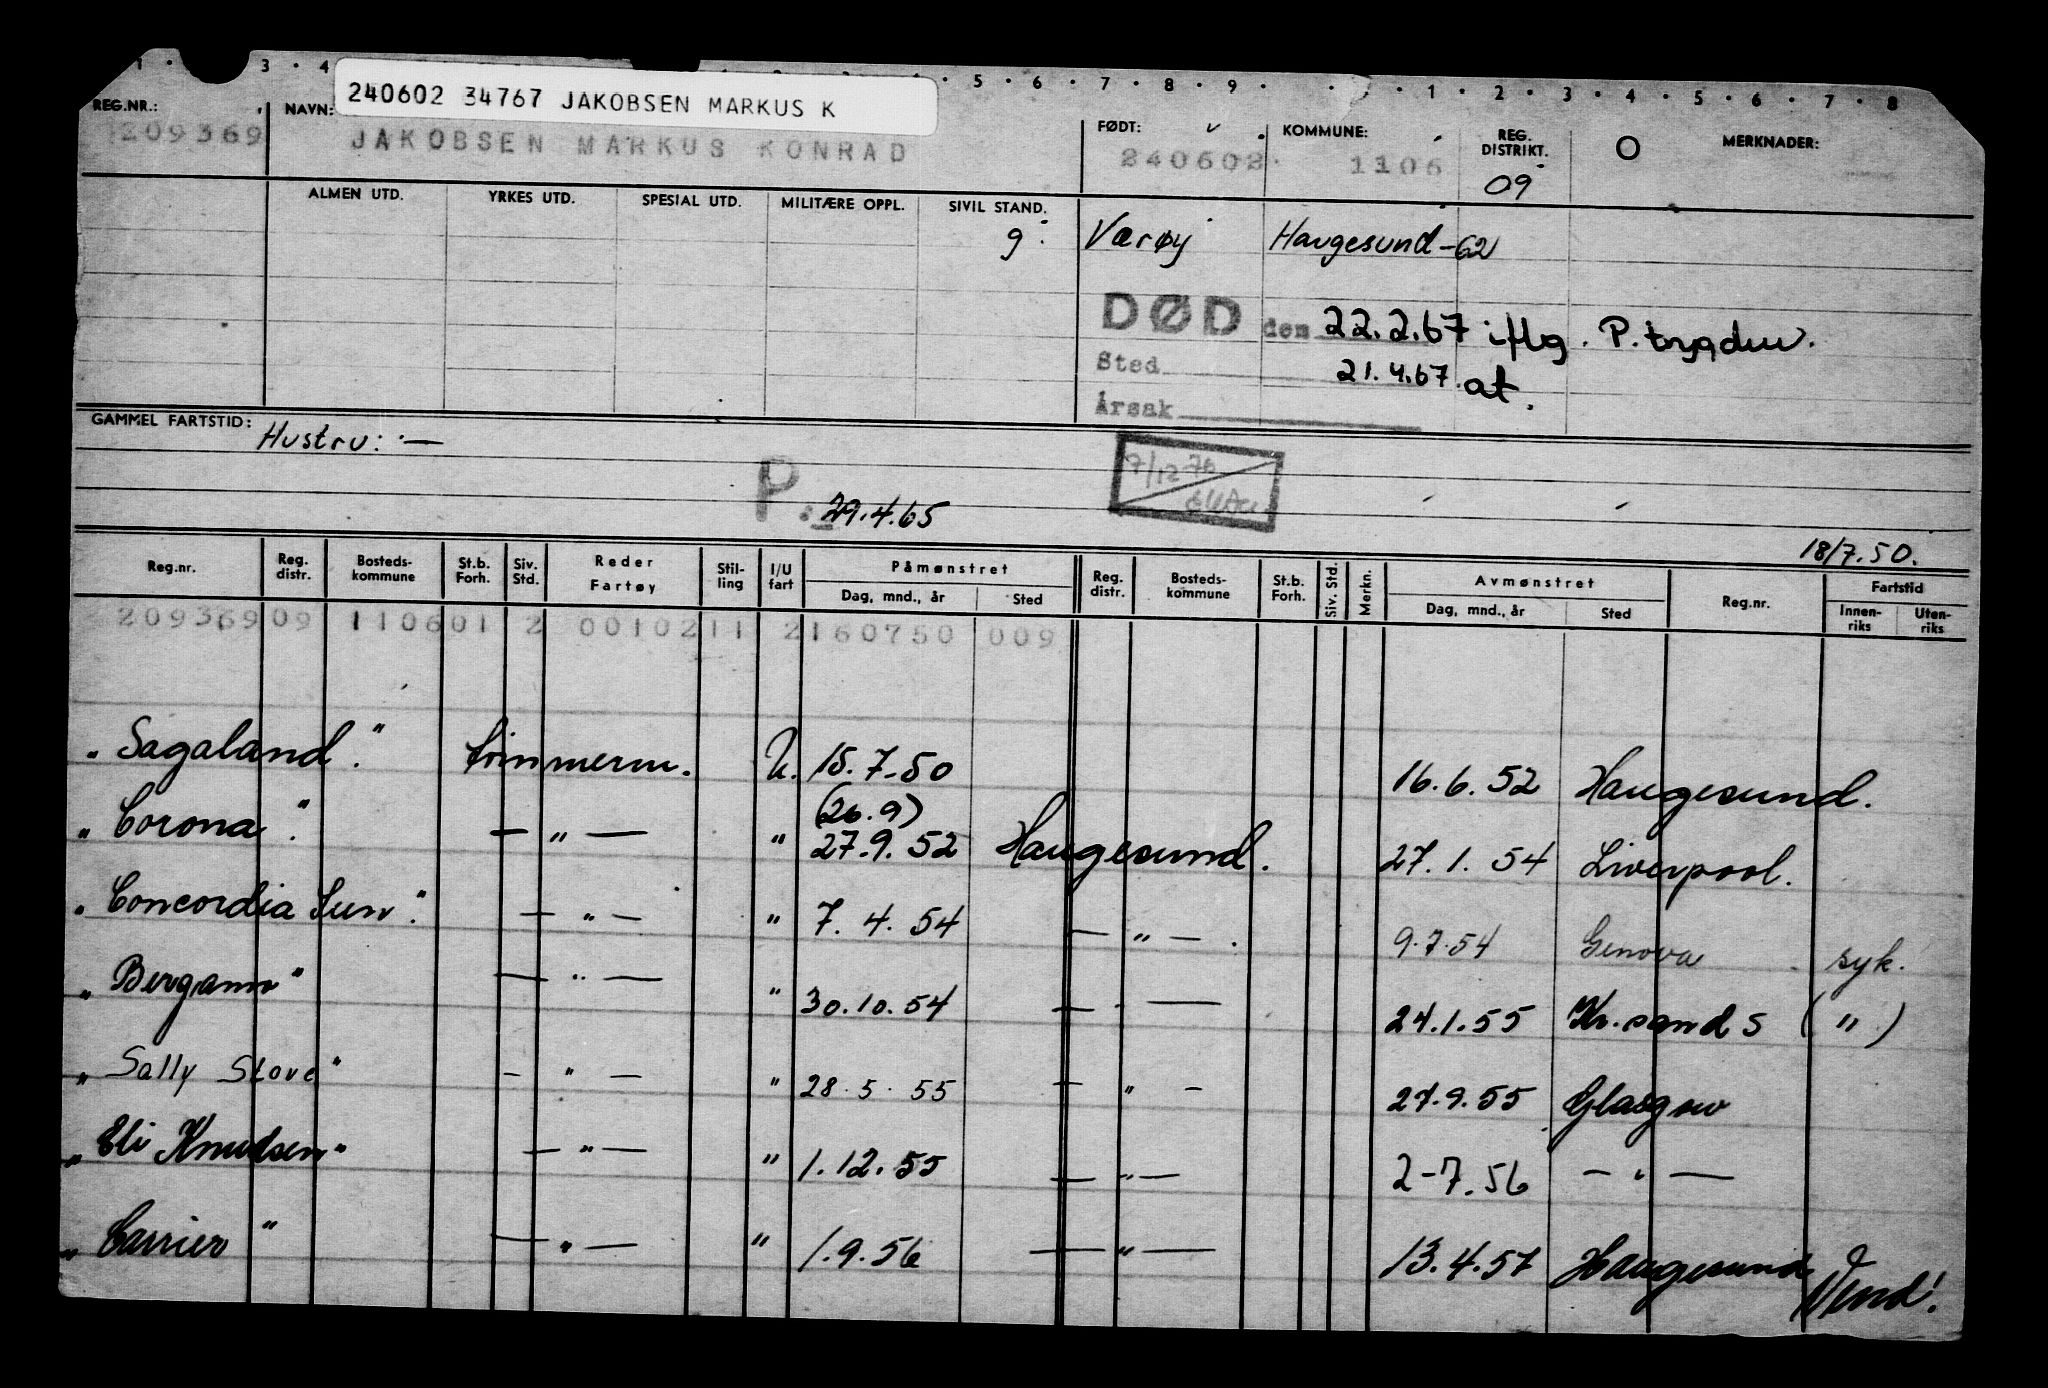 1 · 3 · 4 · 5 · 6 · 7 · 8 · 9 · · 1 · 2 · 3 · 4 · 5 · 6 · 7 · 8
240602 34767 JAKOBSEN MARKUS K
REG.NR.: NAVN: FØDT: KOMMUNE: REG. DISTRIKT. O MERKNADER:
209369 JAKOBSEN MARKUS KONRAD 240602 1106 09
ALMEN UTD. YRKES UTD. SPESIAL UTD. MILITÆRE OPPL. SIVIL STAND.
9 Værøy Haugesund -62
DØD den 22.2.67 iflg. P.trygden.
Sted 21.4.67 at.
Årsak
GAMMEL FARTSTID: Hustru: —
7/12 70
P. 29.4.65
18/7.50.
Reg.nr. Reg. distr. Bosteds- kommune St.b. Forh. Siv. Std. Reder Fartøy Stil- ling I/U fart Påmønstret Reg. distr. Bosteds- kommune St.b. Forh. Siv. Std. Merkn. Avmønstret Reg.nr. Fartstid
Dag, mnd., år Sted Dag, mnd., år Sted Innen- riks Uten- riks
209369 09 1106 01 2 00102 11 2 160750 009
"Sagaland". tømmerm. U. 15.7.50 16.6.52 Haugesund.
(26.9)
"Corona". — " — " 27.9.52 Haugesund. 27.1.54 Liverpool.
"Concordia Sun". — " — " 7.4.54 — " — . 9.7.54 Genova syk.
"Bergamo" — " — " 30.10.54 — " — 24.1.55 Kr.sand S (")
"Sally Stove" — " — " 28.5.55 — " — 27.9.55 Glasgow
"Eli Knudsen" — " — " 1.12.55 — " — 2-7.56 — " —
"Carrier" — " — " 1.9.56 — " — 13.4.57 Haugesund
Vend!